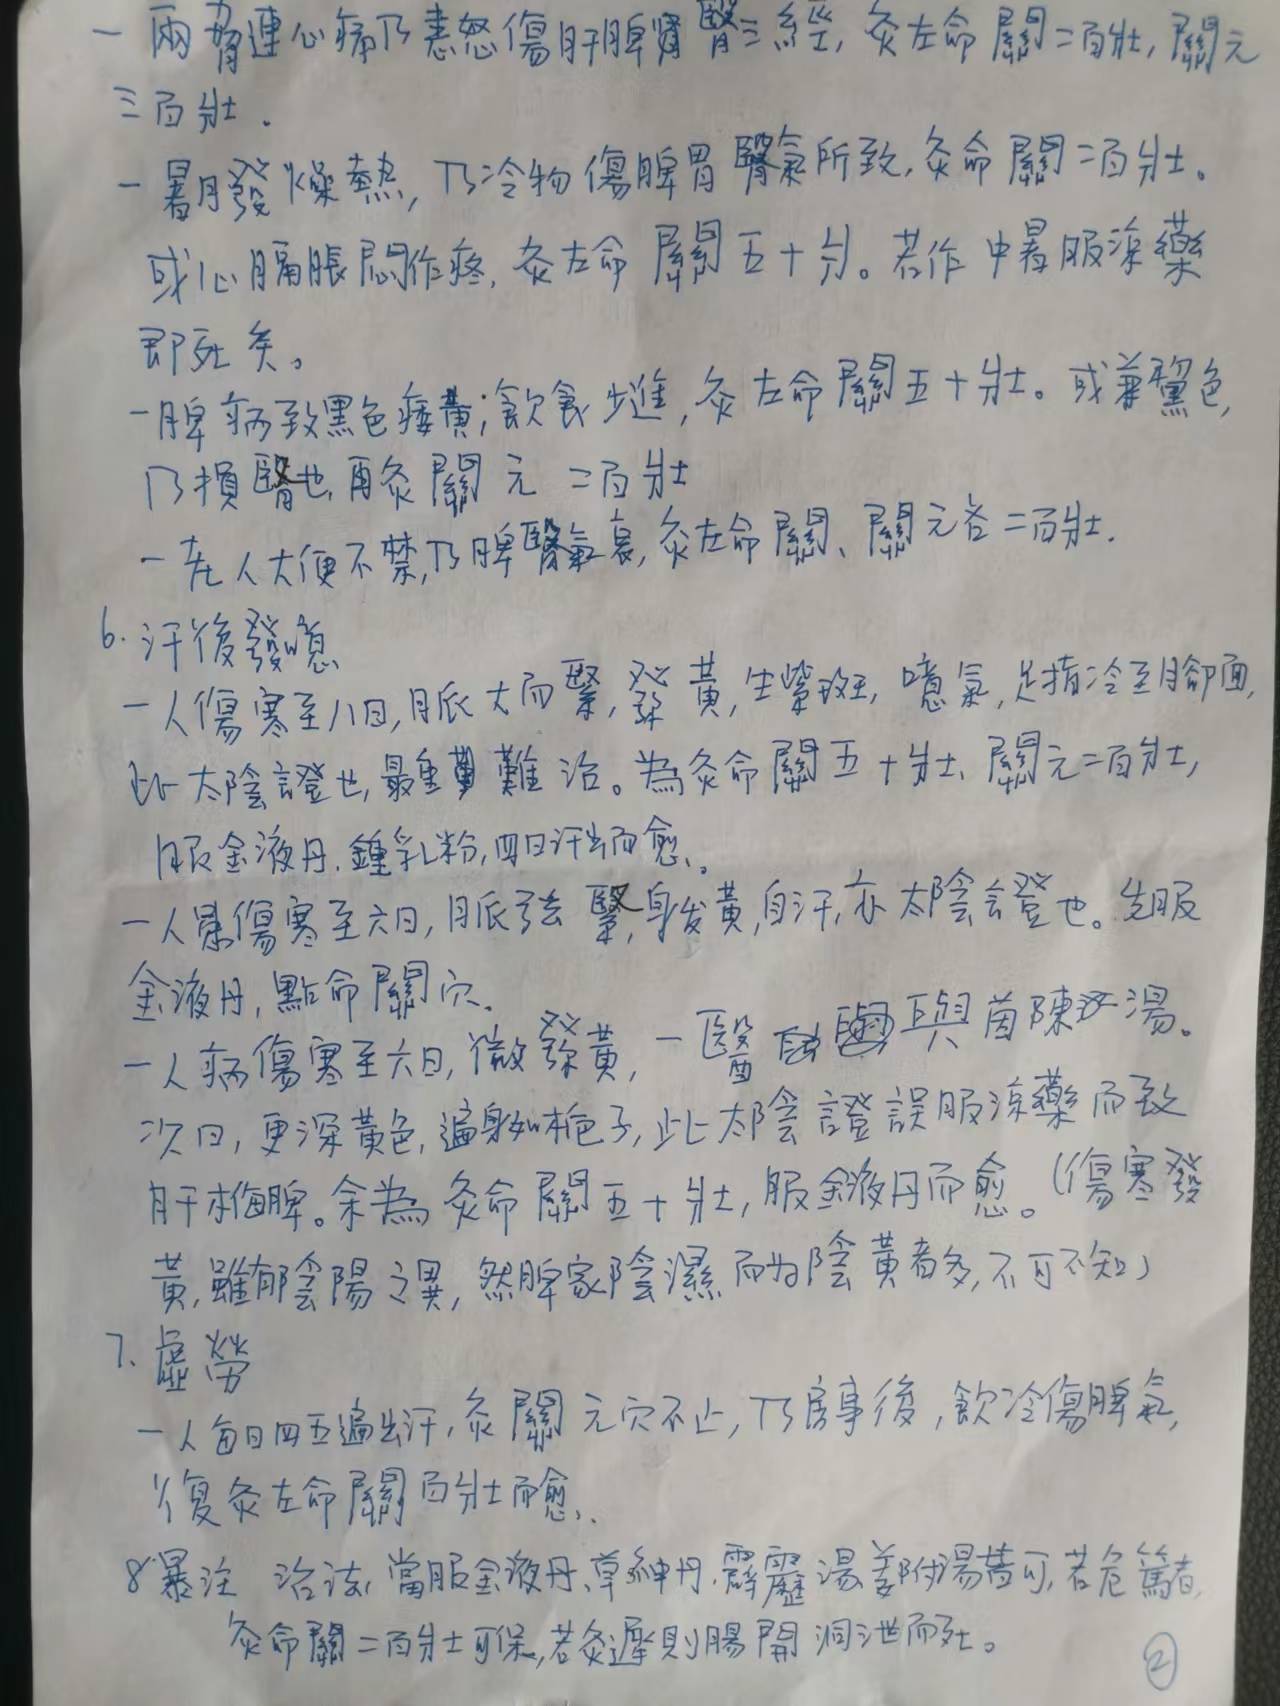 一 兩脅連心痛乃恚怒傷肝脾腎三經，灸左命關二百壯，關元
三百壯．
一 暑月發燥熱，乃冷物傷脾胃腎氣所致，灸命關二百壯。
或心膈脹悶作疼，灸左命關五十分。若作中暑服涼藥
即死矣。
一脾病致黑色痿黃；飲食少進，灸左命關五十壯。或兼黧色，
乃損腎也，再灸關元二百壯
一老人大便不禁，乃脾腎氣衰，灸左命關、關元各二百壯．
6. 汗後發噫
一人傷寒至八日，脈大而緊，發黃，生紫斑，噫氣，足指冷至腳面，
此太陰證也，最重難治。為灸命關五十壯、關元二百壯，
服金液丹、鍾乳粉，四日汗出而愈。
一人患傷寒至六日，脈弦緊，身發黃，自汗，亦太陰證也。先服
金液丹，點命關穴。
一人病傷寒至六日，微發黃，一醫與茵陳湯。
次日，更深黃色，遍身如梔子，此太陰證誤服涼藥而致
肝木侮脾。余為灸命關五十壯，服金液丹而愈。(傷寒發
黃，雖有陰陽之異，然脾家陰濕而為陰黃者多，不可不知)
7. 虛勞
一人每日四五遍出汗，灸關元穴不止，乃房事後，飲冷傷脾氣，
復灸左命關百壯而愈．
8 暴注 治法，當服金液丹、草神丹、霹靂湯、姜附湯皆可，若危篤者，
灸命關二百壯可保，若灸遲則腸開洞泄而死。
②